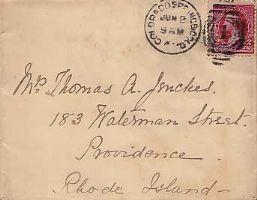 COLORADO SPRINGS, COLO.
JUN
9 AM
Mr. Thomas A. Jenckes.
183 Waterman Street.
Providence.
Rhode Island